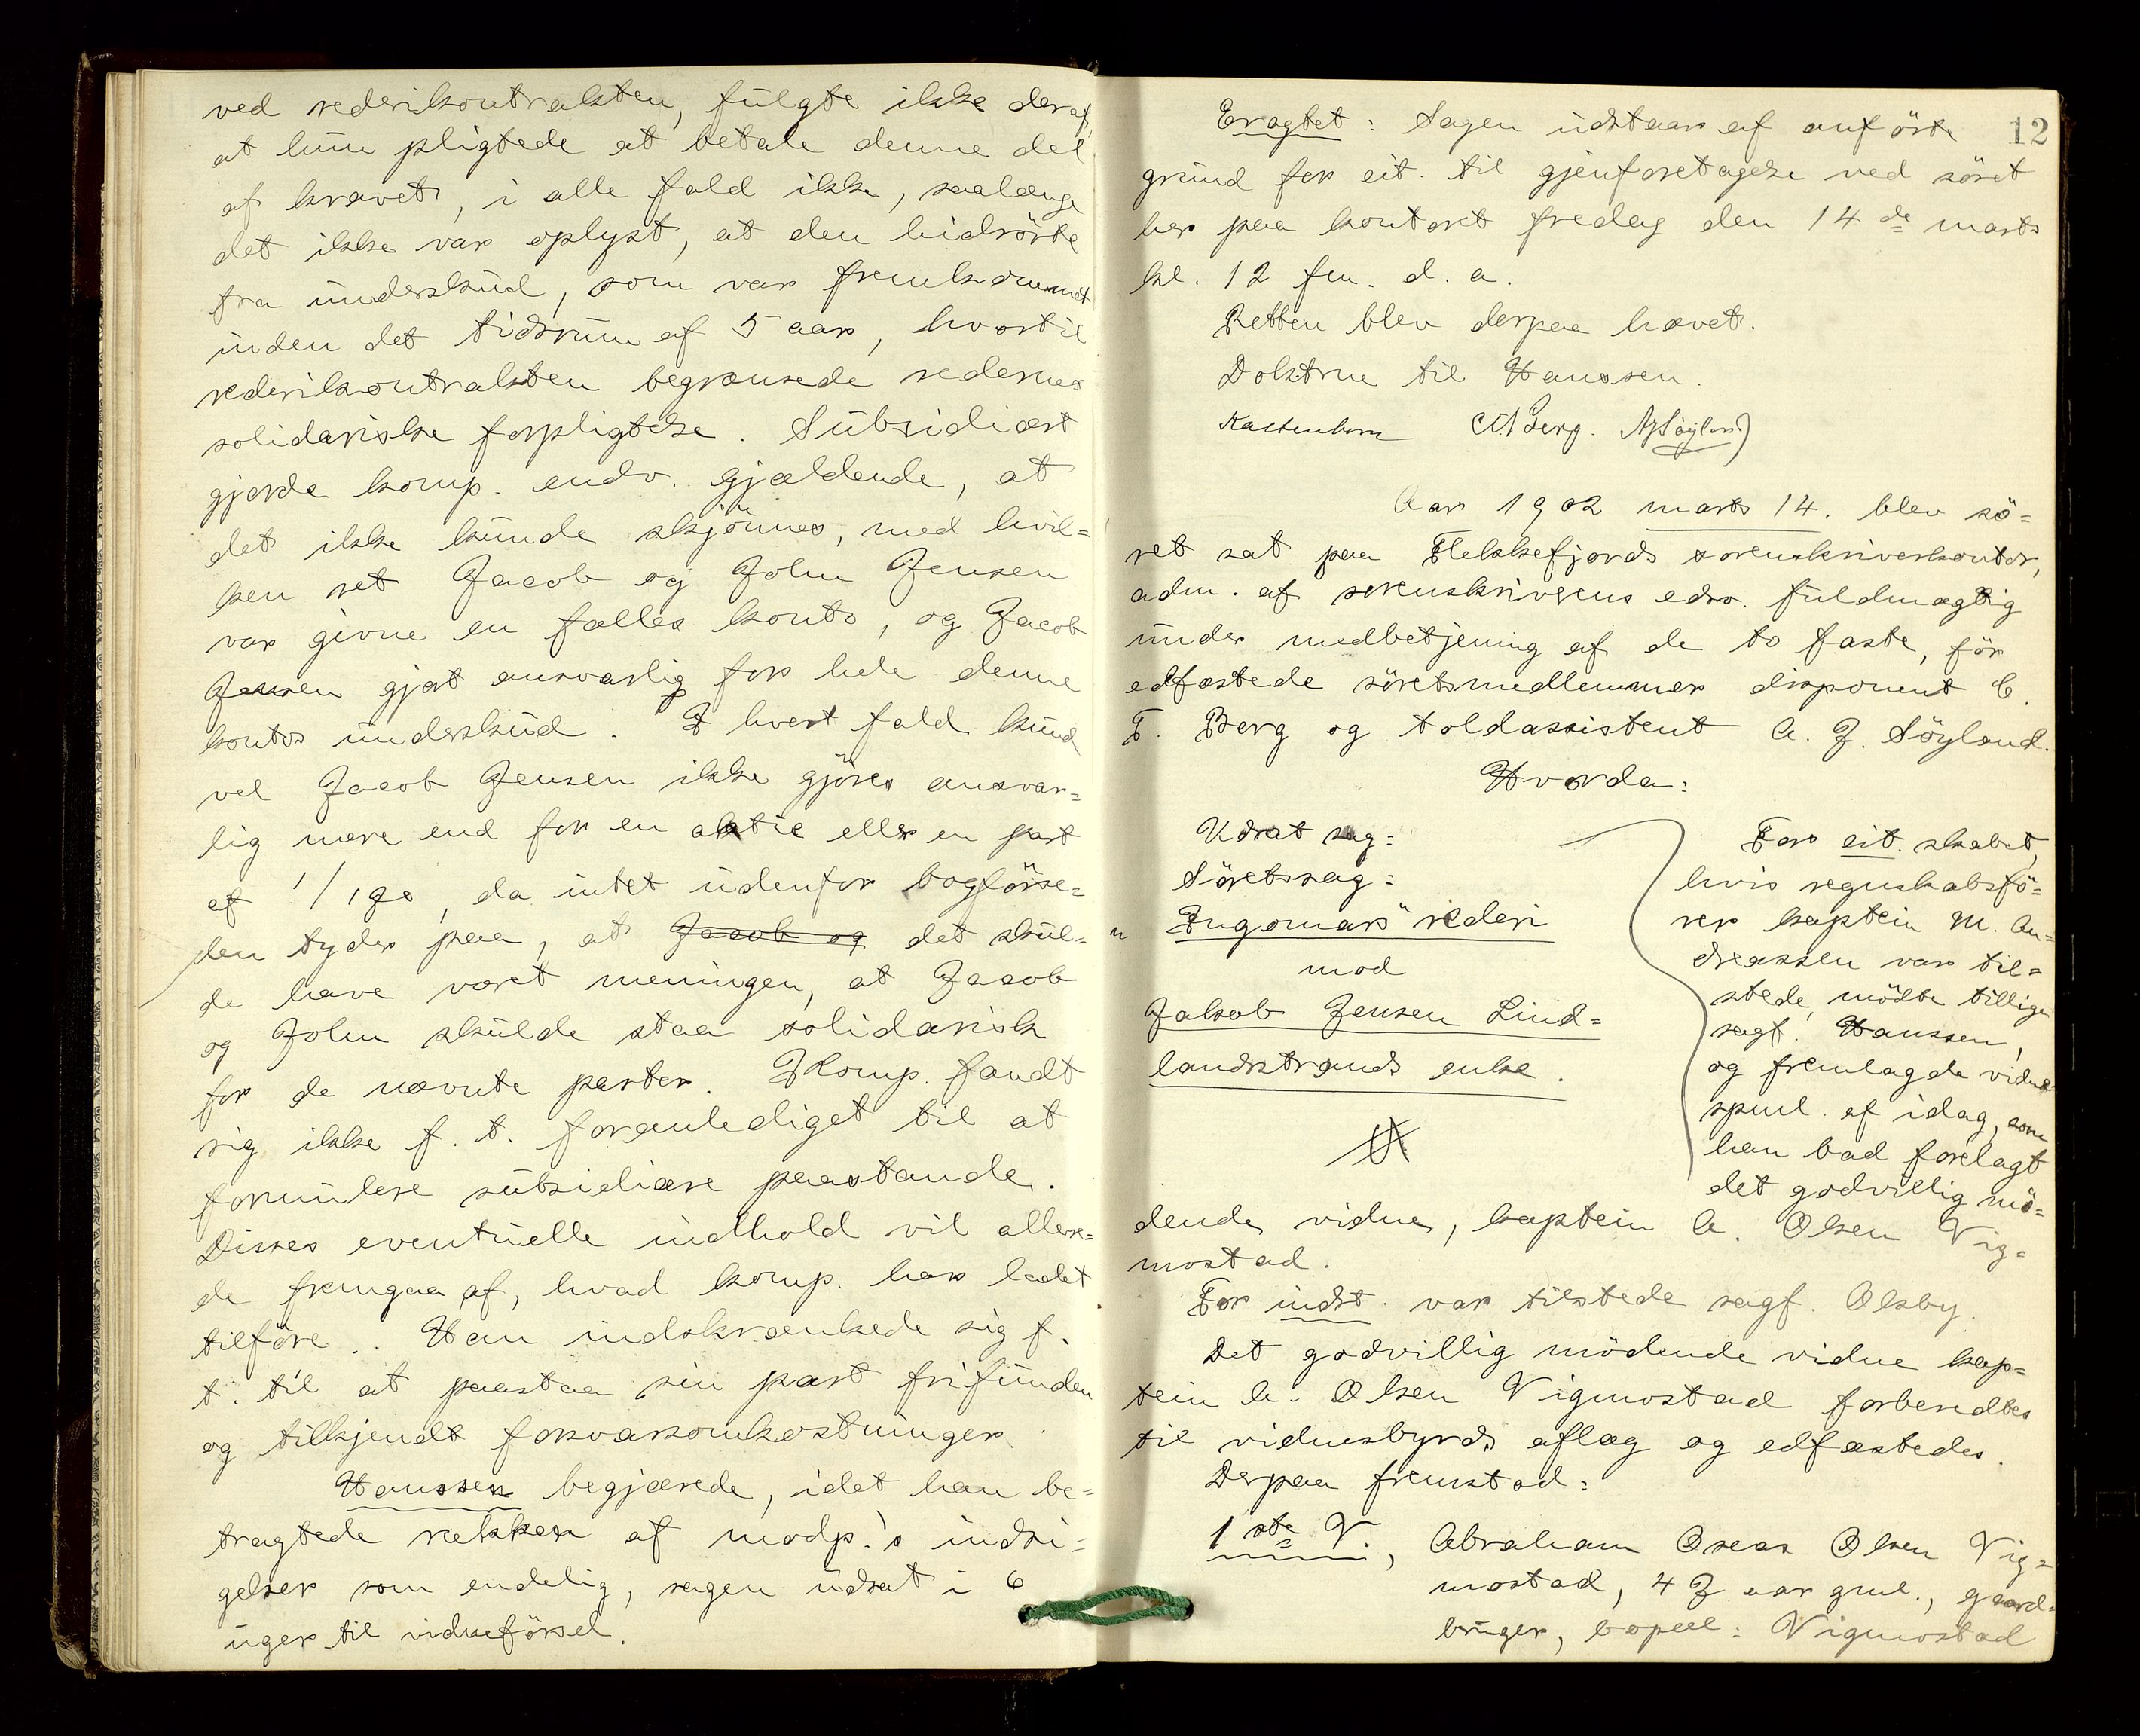 ved rederikontrakten, fulgte ikke deraf,
at hun pligtede at betale denne del
af kravet, i alle fald ikke, saalænge
det ikke var oplyst, at den hidrörte
fra underskud, som var fremkommet
inden det tidsrum af 5 aar, hvortil
rederikontrakten begrænsede redernes
solidariske forpligtelse. Subsidiært
gjorde komp. endv. gjældende, at
det ikke kunde skjönnes, med hvil=
ken ret Jacob og John Jensen
var givne en fælles konto, og Jacob
Jensen gjort ansvarlig for hele denne
kontos underskud. I hvert fald kunde
vel Jacob Jensen ikke gjöres ansvar=
lig mere end for en aktie eller en part
af 1/190, da intet udenfor bogförse=
len tyder paa, at Jacob og det skul=
de have været meningen, at Jacob
og John skulde staa solidarisk
for de nævnte parter. Komp. fandt
sig ikke f. t. foranlediget til at
formulere subsidiære paastande.
Disses eventuelle indhold vil allere=
de fremgaa af, hvad komp. har ladet
tilföre. Han indskrænkede sig f.
t. til at paastaa sin part frifunden
og tilkjendt forsvarsomkostninger.
Hanssen begjærede, idet han be=
tragtede rækken af modp.'s indsi=
gelser som endelig, sagen udsat i 6
uger til vidneförsel.
12
Eragtet: Sagen udstaar af anförte
grund for cit. til gjenforetagelse ved söret
her paa kontoret fredag den 14de marts
kl. 12 fm. d. a.
Retten blev derpaa hævet.
Doktrne til Hanssen.
Kaltenborn CF Berg. AJSöyland
Aar 1902 marts 14. blev sö=
ret sat paa Flekkefjords sorenskriverkontor,
adm. af sorenskriverens edsv. fuldmægtig
under medbetjening af de to faste, för
edfæstede söretsmedlemmer disponent C.
F. Berg og toldassistent A. J. Söyland.
Hvorda:
Udsat sag:
Söretssag:
"Ingomars" rederi
mod
Jakob Jensen Lind=
landstrands enke.
For cit. skabet,
hvis regnskabsfö=
rer kaptein M. An=
dreassen var til=
stede, mödte tillige
sagf. Hanssen,
og fremlagde vidne
spml. af idag, som
han bad forelagt
det godvillig mö=
dende vidne, kaptein A. Olsen Vig=
mostad.
For indst. var tilstede sagf. Olsby.
Det godvillig mödende vidne kap=
tein A. Olsen Vigmostad forberedtes
til vidnesbyrds aflæg og edfæstedes.
Derpaa fremstod:
1ste V., Abraham Oseas Olsen Vig=
mostad, 47 aar gml., gaard=
bruger, bopæl: Vigmostad